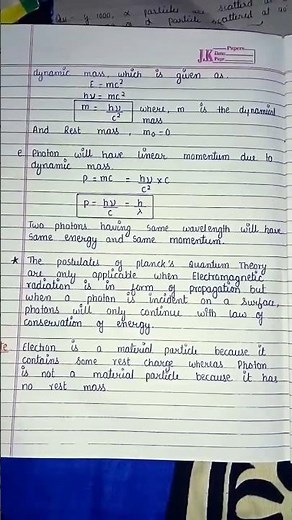 Qu. If 1000, α particles are scattered
α particle scattered at 90
Papers
J.K
Date:
Page
dynamic mass, which is given as.
E = mc²
hν = mc²
m = hν/c² where, m is the dynamical mass
And Rest mass, m₀ = 0
e Photon will have linear momentum due to
dynamic mass.
p = mc = hν/c² × c
p = hν/c = h/λ
Two photons having same wavelength will have
same energy and same momentum.
* The postulates of planck's Quantum Theory
are only applicable when Electromagnetic
radiation is in form of propagation but
when a photon is incident on a surface,
photons will only continue with law of
conservation of energy.
Electron is a material particle because it
contains some rest charge wheras Photon
is not a material particle because it has
no rest mass